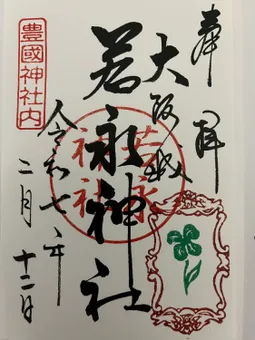 奉拝
大阪城
若永神社
若永神社
豊國神社内
令和七年
二月十二日